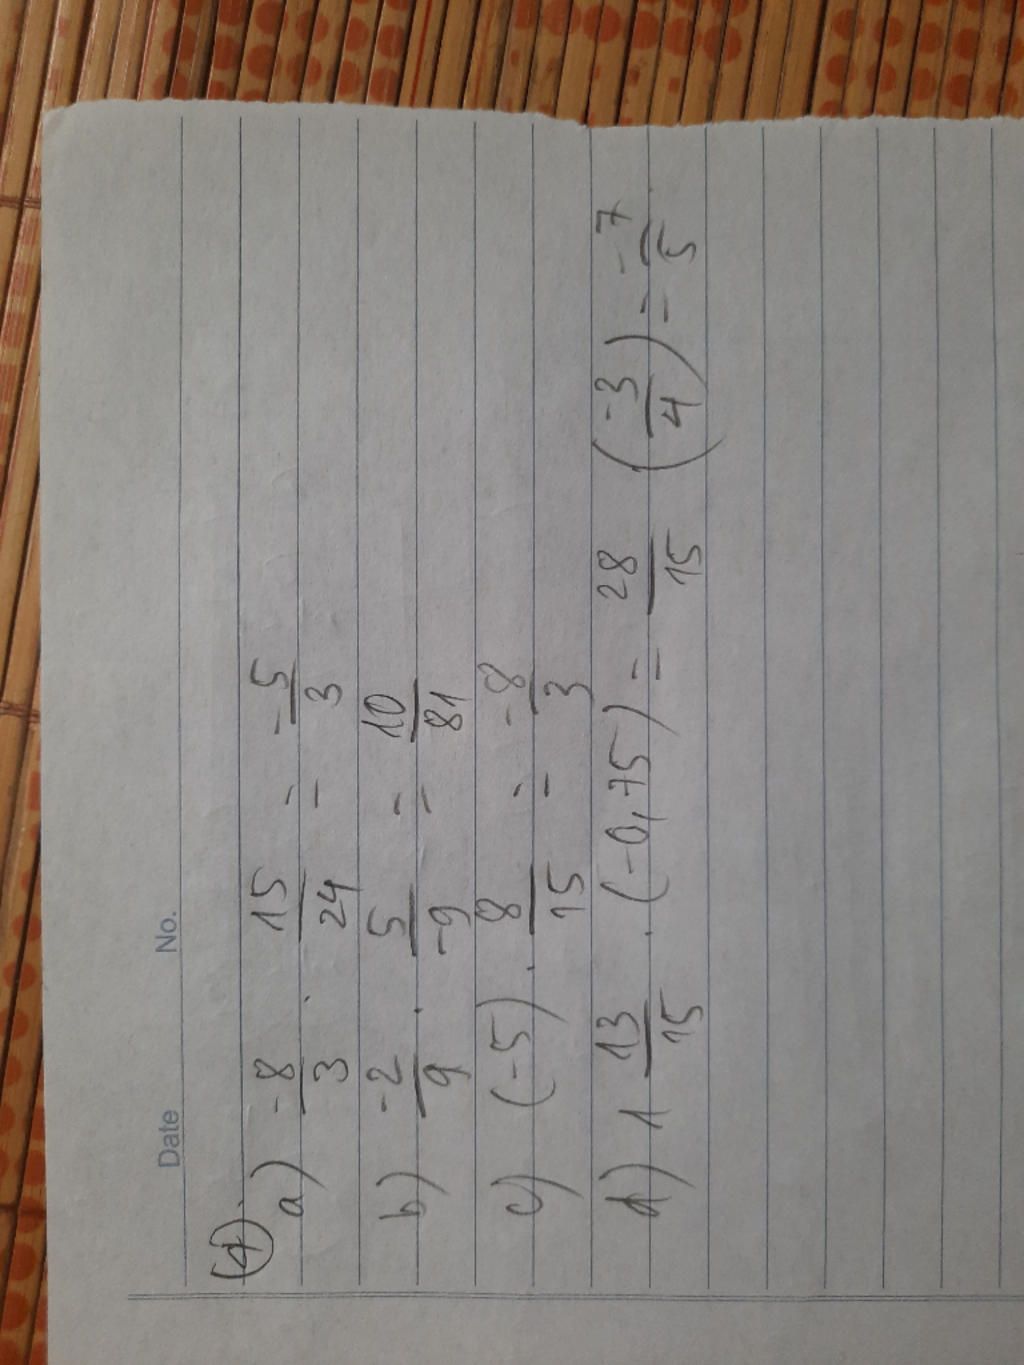 Date No.
(4)
a) -8/3 . 15/24 = -5/3
b) -2/9 . 5/-9 = 10/81
c) (-5) . 8/15 = -8/3
d) 1 13/15 . (-0,75) = 28/15 (-3/4) = -7/5